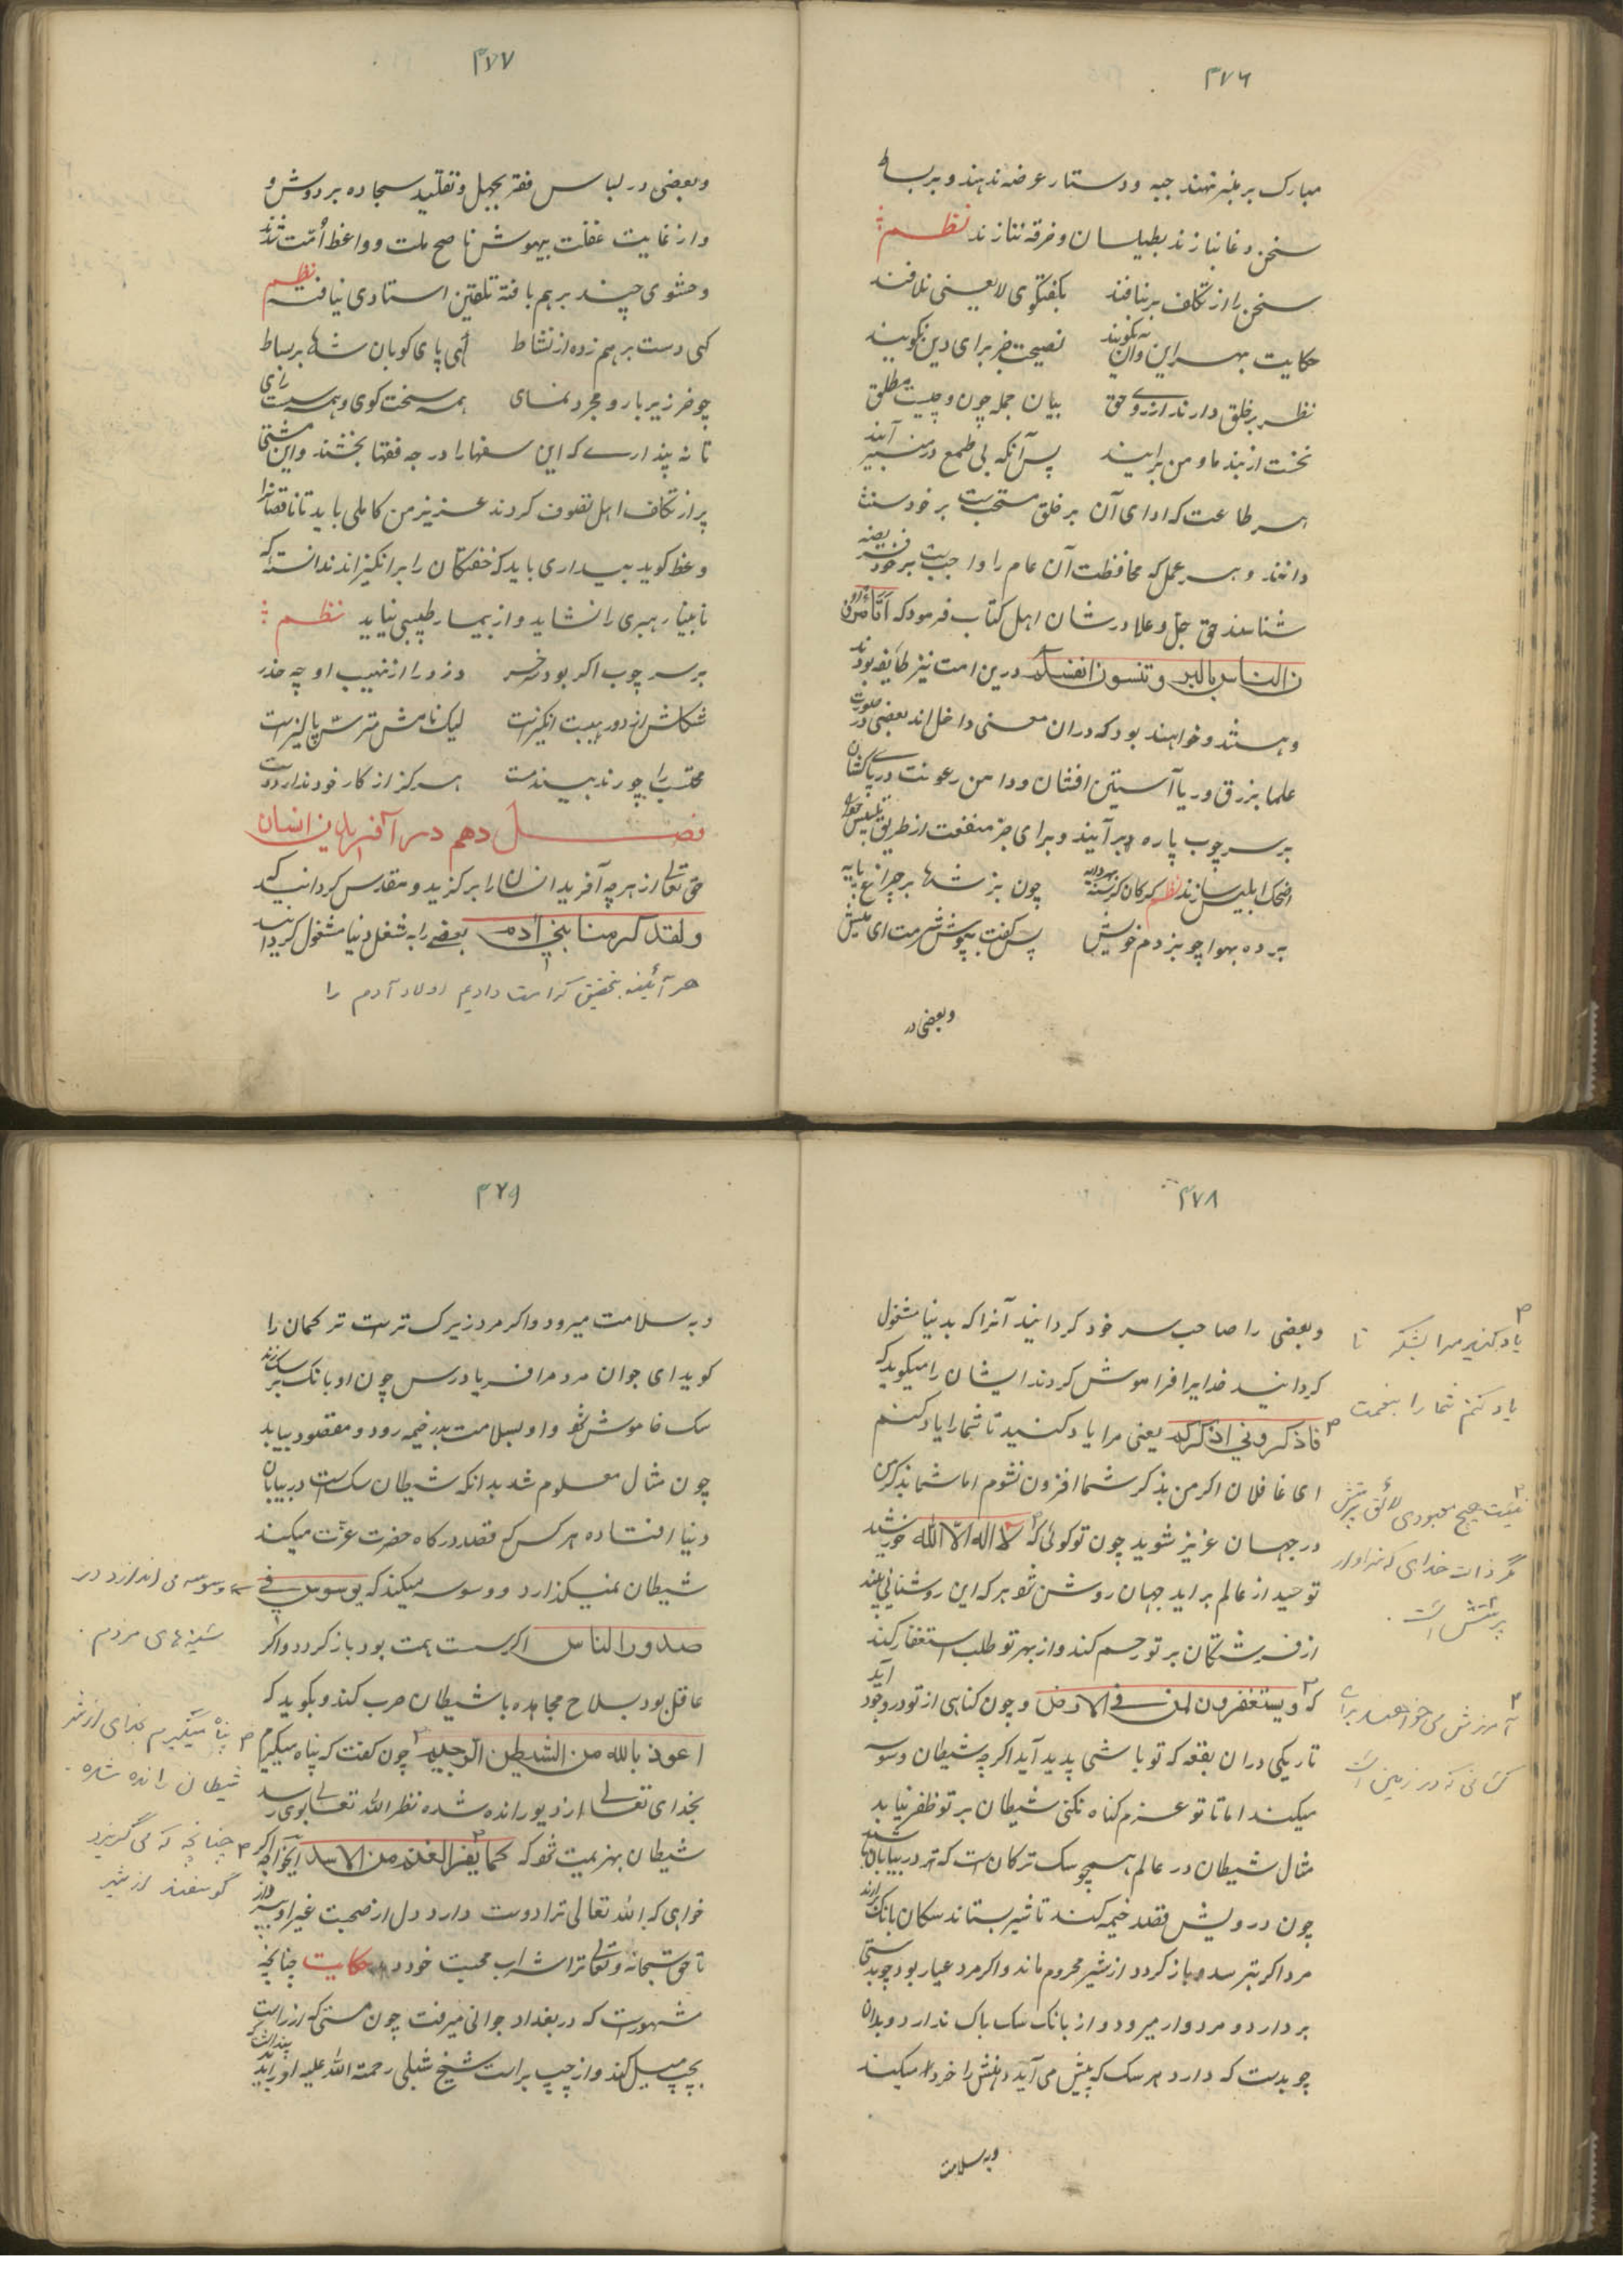 ۳۷۶
مبارک بر منبر نهند جبه و دستار عرضه ندهند و بر بساط
سخن دغا نبازند بطیلسان و خرقه ننازند نظم
سخن را از تکلف بر نبافند بگفتگوی لایعنی نلافند
حکایت بهر این و آن نگویند نصیحت جز برای دین نگویند
نظر بر خلق دارند از روی حق بیان جمله چون و چیست مطلق
نخست از بند ما و من برایند پس آنگه بی طمع در منبر آیند
هر طاعت که ادای آن بر خلق مستحبست بر خود سنت
دانند و هر عمل که محافظت آن عام را واجبست بر خود فریضه
شناسند حق جل و علا در شان اهل کتاب فرمود که اتامرو
ن الناس بالبر و تنسون انفسکم درین امت نیز طایفه بودند
و هستند و خواهند بود که دران معنی داخل اند بعضی در صورت
علما بزرق و ریا آستین افشان و دامن رعونت در پا کشان
بر سر چوب پاره بر آیند و برای جز منفعت از طریق تلبیس خود
اضحکه ابلیس سازند نظم گرکان گرسنه چون بز شدها بر چراغ پایه
برده بهوا چو بز دم خویش پس گفت بپوش شرمت ای میش
و بعضی در
۳۷۷
و بعضی در لباس فقر بجهل و تقلید سجاده بر دوش و
و از غایت غفلت بیهوش ناصح ملت و واعظ امت شدند
و حشوی چند بر هم بافته تلقین استادی نیافته نظم
کهی دست بر هم زده از نشاط کهی پای کوبان شدها بر بساط
چو خر زیر بار و مجرد نمای همه سخت کوی و همه سست رای
تا نه پنداری که این سفها را درجه فقها بخشند و این مشتی
پر از تکلف اهل تصوف کردند عزیز من کاملی باید تا ناقصانرا
وعظ کوید بیداری باید که خفتکان را برانکیزاند ندانسته که
نابینا رهبری را نشاید و از بیمار طبیبی نیاید نظم
بر سر چوب اکر بود خر سر دزد را از نهیب او چه حذر
شکلش از دور هیبت انکیزست لیک نامش مترس پالیزست
محتسب را چو رند بیند مست هرکز از کار خود ندارد دست
فصل دهم در آفرینش انسان
حق تعالی از هر چه آفرید انسان را برکزید و مقدس کردانید که
ولقد کرمنا بنی آدم بعضی را به شغل دنیا مشغول کردانید
هر آئینه بتحقیق کرامت دادیم اولاد آدم را
۳۷۸
و بعضی را صاحب سر خود کردانید آنرا که بدنیا مشغول
کردانید خدایرا فراموش کردند ایشان را میکوید که
فاذکرونی اذکرکم یعنی مرا یاد کنید تا شما را یاد کنم
ای غافلان اکر من بذکر شما افزون نشوم اما شما بذکر من
در جهان عزیز شوید چون تو کوئی که لا اله الا الله خورشید
توحید از عالم براید جهان روشن شو هر که این روشنائی بیند
از فرشتکان بر تو رحم کند و از بهر تو طلب استغفار کند
که و یستغفرون لمن فی الارض و چون کناهی از تو در وجود آید
تاریکی دران بقعه که تو باشی پدید آید اکر چه شیطان وسوسه
میکند اما تا تو عزم کناه نکنی شیطان بر تو ظفر نیابد
مثال شیطان در عالم همچو سک ترکان است که در بیابان
چون درویش قصد خیمه کند تا شیر بستاند سکان بانک زنند
مرد اکر بترسد و باز کردد از شیر محروم ماند و اکر مرد عیار بود چوبدستی
بردارد و مردوار میرود و از بانک سک باک ندارد و بدان
چوبدست که دارد هر سک که پیش می آید دهنش را خرد میکند
و به سلامت
یاد کنید مرا بشکر تا
یاد کنم شما را بنعمت
نیست هیچ معبودی لائق پرستش
مگر ذات خدای که سزاوار
پرستش است
آمرزش می خواهند برای
کسانی که در زمین است
۳۷۹
و به سلامت میرود و اکر مرد زیرک تر است ترکمان را
کوید ای جوان مرد مرا فریاد رس چون او بانک بر سک زند
سک خاموش شو و او بسلامت بدر خیمه رود و مقصود بیابد
چون مثال معلوم شد بدانکه شیطان سک است در بیابان
دنیا افتاده هر کس که قصد درکاه حضرت عزت میکند
شیطان نمیکذارد و وسوسه میکند که یوسوس فی
صدور الناس اکر سست همت بود باز کردد و اکر
عاقل بود بسلاح مجاهده با شیطان حرب کند و بکوید که
اعوذ بالله من الشیطن الرجیم چون کفت که پناه میکیرم
بخدای تعالی از دیو رانده شده نظر الله تعالی بوی رسد
شیطان بهزیمت شو که کما یفر الغنم من الاسد ایخواجه اکر
خواهی که الله تعالی ترا دوست دارد دل از صحبت غیر او بپرداز
تا حق سبحانه و تعالی ترا شراب محبت خود دهد حکایت چنانچه
مشهورست که در بغداد جوانی میرفت چون مستی که از راست
بچپ میل کند و از چپ براست شیخ شبلی رحمة الله علیه او را بدید پنداشت که
وسوسه می اندازد در
سینه های مردم
پناه میگیرم بخدای از شر
شیطان رانده شده
چنانچه که می گریزد
گوسفند از شیر